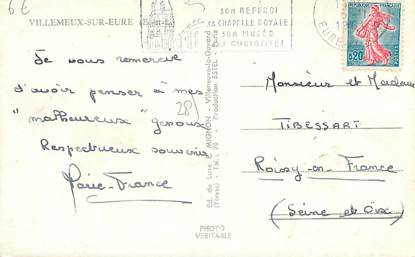 6€
VILLEMEUX-SUR-EURE
SON BEFFROI
SA CHAPELLE ROYALE
SON MUSÉE
SES CURIOSITÉS
EURE
REPUBLIQUE FRANÇAISE
0,20
POSTES
Je vous remercie
d'avoir penser à mes
"malheureux" genoux.
Respectueux souvenirs
Marie-France
28
Ed. du Lane. MIGNON - Villeneuve-la-Guyard
(Yonne) - Tél.: 70 - Production ESTEL - Paris
PHOTO
VERITABLE
Monsieur et Madame
TIBESSART
Roissy-en-France
(Seine et Oise)